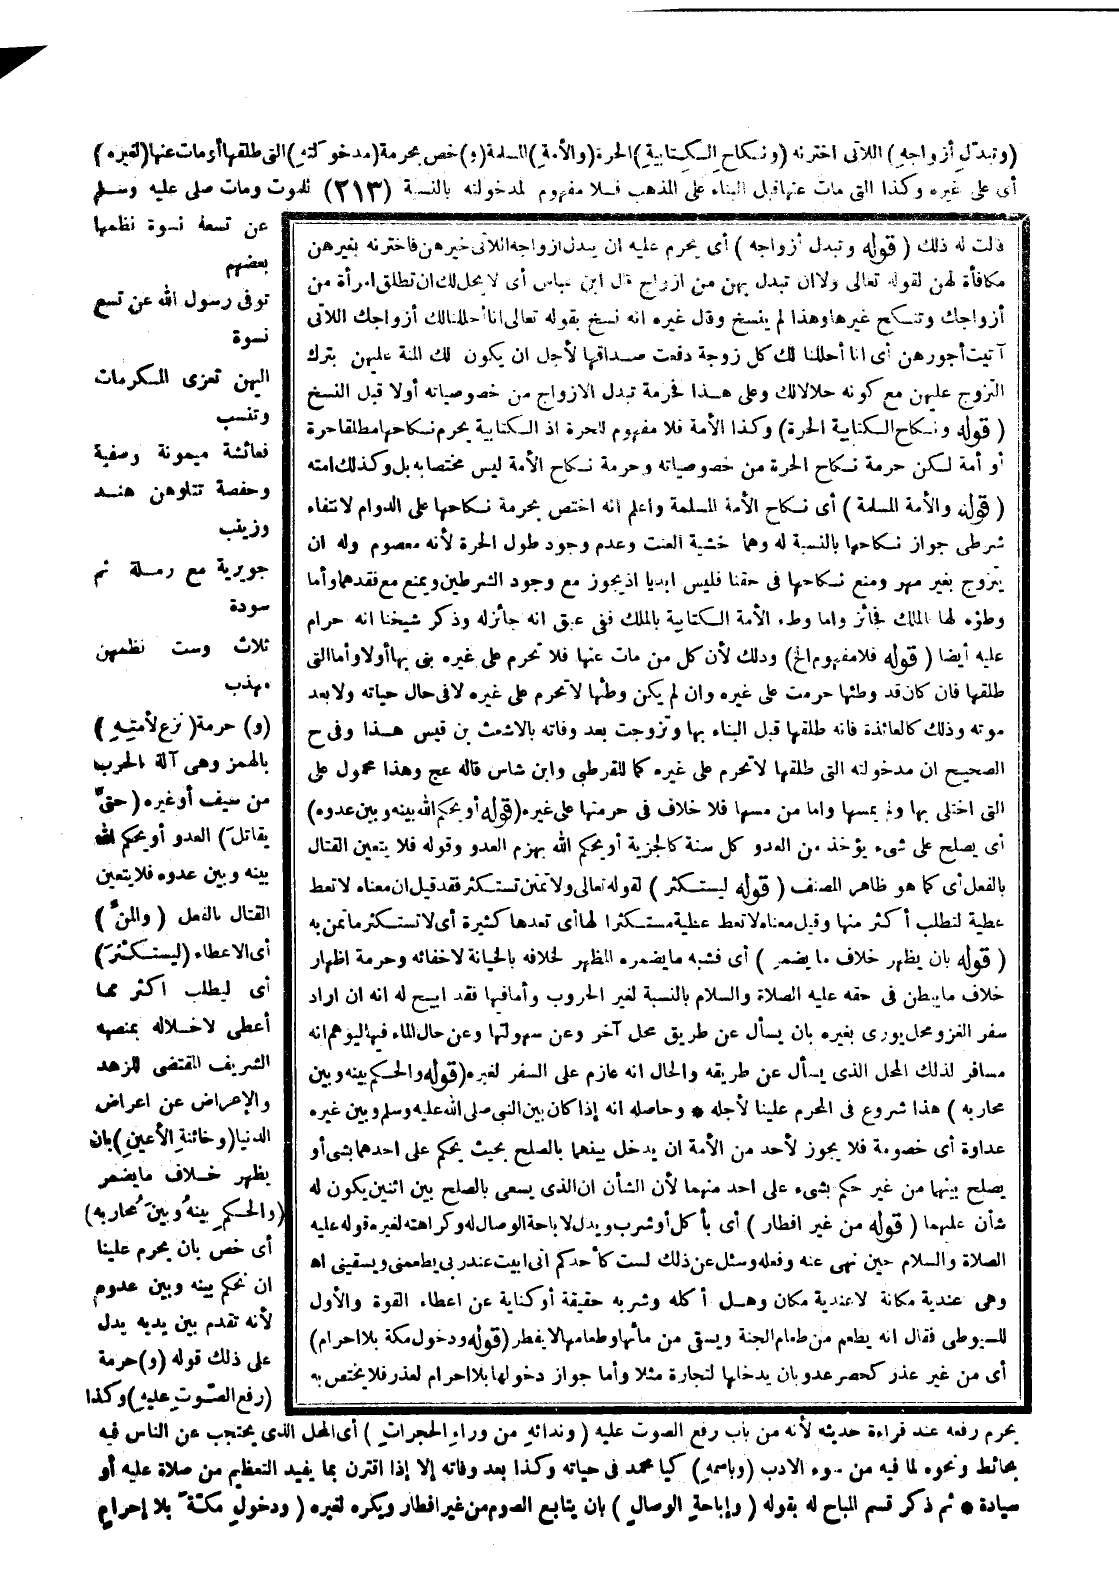 (وتبدل أزواجه) اللاتى اخترنه (ونكاح الكتابية) الحرة (والأمة) المسلمة (و) خص بحرمة (مدخولته) التى طلقها أو مات عنها (لغيره)
أى على غيره وكذا التى مات عنها قبل البناء على المذهب فلا مفهوم لمدخولته بالنسبة (٢١٣) للموت ومات صلى عليه وسلم
عن تسعة نسوة نظمها
بعضهم
توفى رسول الله عن تسع
نسوة
اليهن تعزى المكرمات
وتنسب
فعائشة ميمونة وصفية
وحفصة تتلوهن هند
وزينب
جويرية مع رملة ثم
سودة
ثلاث وست نظمهن
مهذب
(و) حرمة (نزع لأمته)
بالهمز وهى آلة الحرب
من سيف أو غيره (حتى
يقاتل) العدو أو يحكم الله
بينه وبين عدوه فلا يتعين
القتال بالفعل (والمن)
أى الاعطاء (ليستكثر)
أى ليطلب اكثر مما
أعطى لاخلاله بمنصبه
الشريف المقتضى للزهد
والاعراض عن اعراض
الدنيا (وخائنة الأعين) بان
يظهر خلاف مايضمر
(والحكم بينه وبين محاربه)
أى خص بان يحرم علينا
ان نحكم بينه وبين عدوه
لأنه تقدم بين يديه يدل
على ذلك قوله (و) حرمة
(رفع الصوت عليه) وكذا
يحرم رفعه عند قراءة حديثه لأنه من باب رفع الصوت عليه (وندائه من وراء الحجرات) أى المحل الذى يحتجب عن الناس فيه
بحائط ونحوه لما فيه من سوء الادب (وباسمه) كيا محمد فى حياته وكذا بعد وفاته إلا إذا اقترن بما يفيد التعظيم من صلاة عليه أو
سيادة * ثم ذكر قسم المباح له بقوله (وإباحة الوصال) بان يتابع الصوم من غير افطار ويكره لغيره (ودخول مكة بلا إحرام
قالت له ذلك (قوله وتبدل أزواجه) أى يحرم عليه ان يبدل ازواجه اللاتى خيرهن فاخترنه بغيرهن
مكافأة لهن لقوله تعالى ولا ان تبدل بهن من ازواج قال ابن عباس أى لا يحل لك ان تطلق امرأة من
أزواجك وتنكح غيرها وهذا لم ينسخ وقال غيره انه نسخ بقوله تعالى انا أحللنا لك أزواجك اللاتى
آتيت أجورهن أى انا أحللنا لك كل زوجة دفعت صداقها لأجل ان يكون لك المنة عليهن بترك
التزوج عليهن مع كونه حلالا لك وعلى هذا فحرمة تبدل الازواج من خصوصياته أولا قبل النسخ
(قوله ونكاح الكتابية الحرة) وكذا الأمة فلا مفهوم للحرة اذ الكتابية يحرم نكاحها مطلقا حرة
أو أمة لكن حرمة نكاح الحرة من خصوصياته وحرمة نكاح الأمة ليس مختصا به بل وكذلك امته
(قوله والأمة المسلمة) أى نكاح الأمة المسلمة واعلم انه اختص بحرمة نكاحها على الدوام لانتفاء
شرطى جواز نكاحها بالنسبة له وهما خشية العنت وعدم وجود طول الحرة لأنه معصوم وله ان
يتزوج بغير مهر ومنع نكاحها فى حقنا فليس ابديا اذ يجوز مع وجود الشرطين ويمنع مع فقدهما وأما
وطؤه لها بالملك فجائز واما وطء الأمة الكتابية بالملك ففى عبق انه جائز له وذكر شيخنا انه حرام
عليه أيضا (قوله فلا مفهوم الخ) وذلك لأن كل من مات عنها فلا تحرم على غيره بنى بها أولا وأما التى
طلقها فان كان قد وطئها حرمت على غيره وان لم يكن وطئها لا تحرم على غيره لا فى حال حياته ولا بعد
موته وذلك كالعائذة فانه طلقها قبل البناء بها وتزوجت بعد وفاته بالاشعث بن قيس هذا وفى ح
الصحيح ان مدخولته التى طلقها لا تحرم على غيره كما للقرطبى وابن شاس قاله عج وهذا محمول على
التى اختلى بها ولم يمسها واما من مسها فلا خلاف فى حرمتها على غيره (قوله أو يحكم الله بينه وبين عدوه)
أى يصلح على شىء يؤخذ من العدو كل سنة كالجزية أو يحكم الله بهزم العدو وقوله فلا يتعين القتال
بالفعل أى كما هو ظاهر المصنف (قوله ليستكثر) لقوله تعالى ولا تمنن تستكثر فقد قيل ان معناه لا تعط
عطية لتطلب أكثر منها وقيل معناه لا تعط عطية مستكثرا لها أى تعدها كثيرة أى لا تستكثر ما تمن به
(قوله بان يظهر خلاف ما يضمر) أى فشبه ما يضمره المظهر لخلافه بالخيانة لاخفائه وحرمة اظهار
خلاف ما يبطن فى حقه عليه الصلاة والسلام بالنسبة لغير الحروب وأما فيها فقد ابيح له انه ان اراد
سفر الغزو محل يورى بغيره بان يسأل عن طريق محل آخر وعن سهولتها وعن حال الماء فيها ليوهم انه
مسافر لذلك المحل الذى يسأل عن طريقه والحال انه عازم على السفر لغيره (قوله والحكم بينه وبين
محاربه) هذا شروع فى المحرم علينا لأجله * وحاصله انه إذا كان بين النبى صلى الله عليه وسلم وبين غيره
عداوة أى خصومة فلا يجوز لأحد من الأمة ان يدخل بينهما بالصلح بحيث يحكم على احدهما بشى أو
يصلح بينهما من غير حكم بشىء على احد منهما لأن الشأن ان الذى يسعى بالصلح بين اثنين يكون له
شأن عليهما (قوله من غير افطار) أى بأكل أو شرب ويدل لاباحة الوصال له وكراهته لغيره قوله عليه
الصلاة والسلام حين نهى عنه وفعله وسئل عن ذلك لست كأحدكم انى ابيت عند ربى يطعمنى ويسقينى اه
وهى عندية مكانة لا عندية مكان وهل أكله وشربه حقيقة أو كناية عن اعطاء القوة والأول
للسيوطى فقال انه يطعم من طعام الجنة ويسقى من مائها وطعامها لا يفطر (قوله ودخول مكة بلا احرام)
أى من غير عذر كحصر عدو بان يدخلها لتجارة مثلا وأما جواز دخولها بلا احرام لعذر فلا يختص به